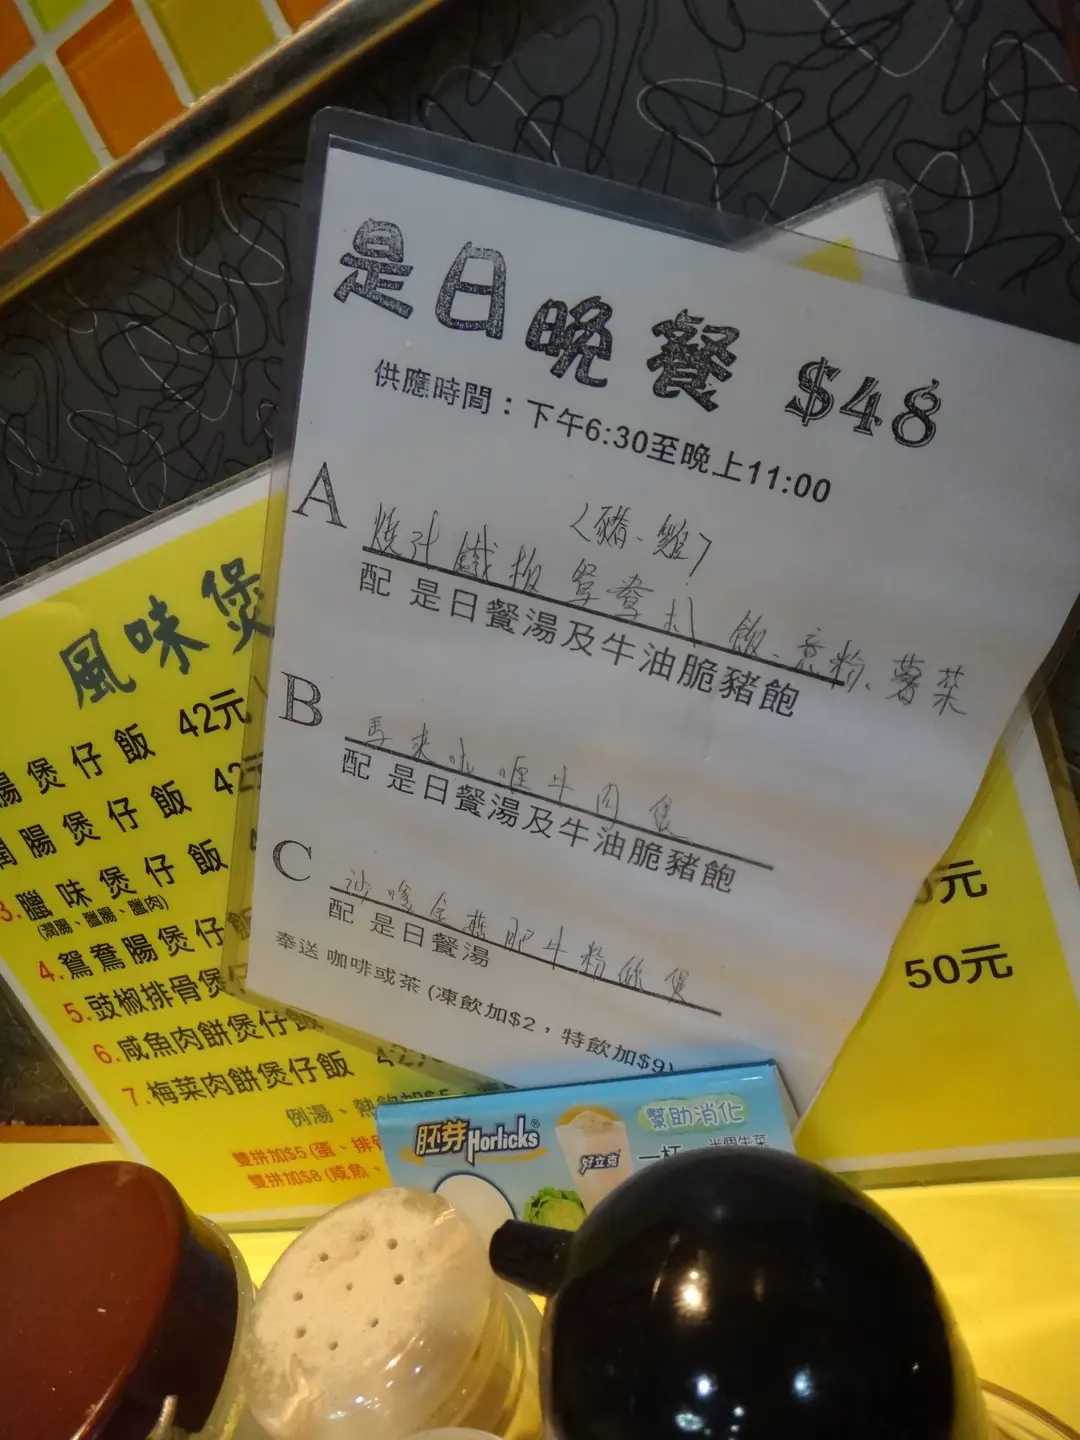 是日晚餐 $48
供應時間：下午6:30至晚上11:00
A
〈豬、雞〉
燒汁鐵板鴛鴦扒 飯、意粉、薯菜
配 是日餐湯及牛油脆豬飽
B
馬來咖喱牛肉煲
配 是日餐湯及牛油脆豬飽
C
沙嗲金菇肥牛粉絲煲
配 是日餐湯
奉送 咖啡或茶 (凍飲加$2，特飲加$9)
風味煲
腸煲仔飯 42元
潤腸煲仔飯
3.臘味煲仔飯
(潤腸、臘腸、臘肉)
4.鴛鴦腸煲仔飯
5.豉椒排骨煲
6.咸魚肉餅煲仔飯
7.梅菜肉餅煲仔飯
例湯、熱飲加$5
雙拼加$5(蛋、排骨
雙拼加$8(咸魚、
元
50元
胚芽Horlicks®
好立克
幫助消化
一杯